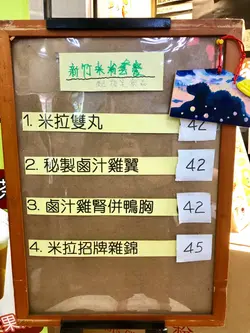 新竹米粉套餐
1. 米拉雙丸 42
2. 秘製鹵汁雞翼 42
3. 鹵汁雞腎併鴨胸 42
4. 米拉招牌雜錦 45
果